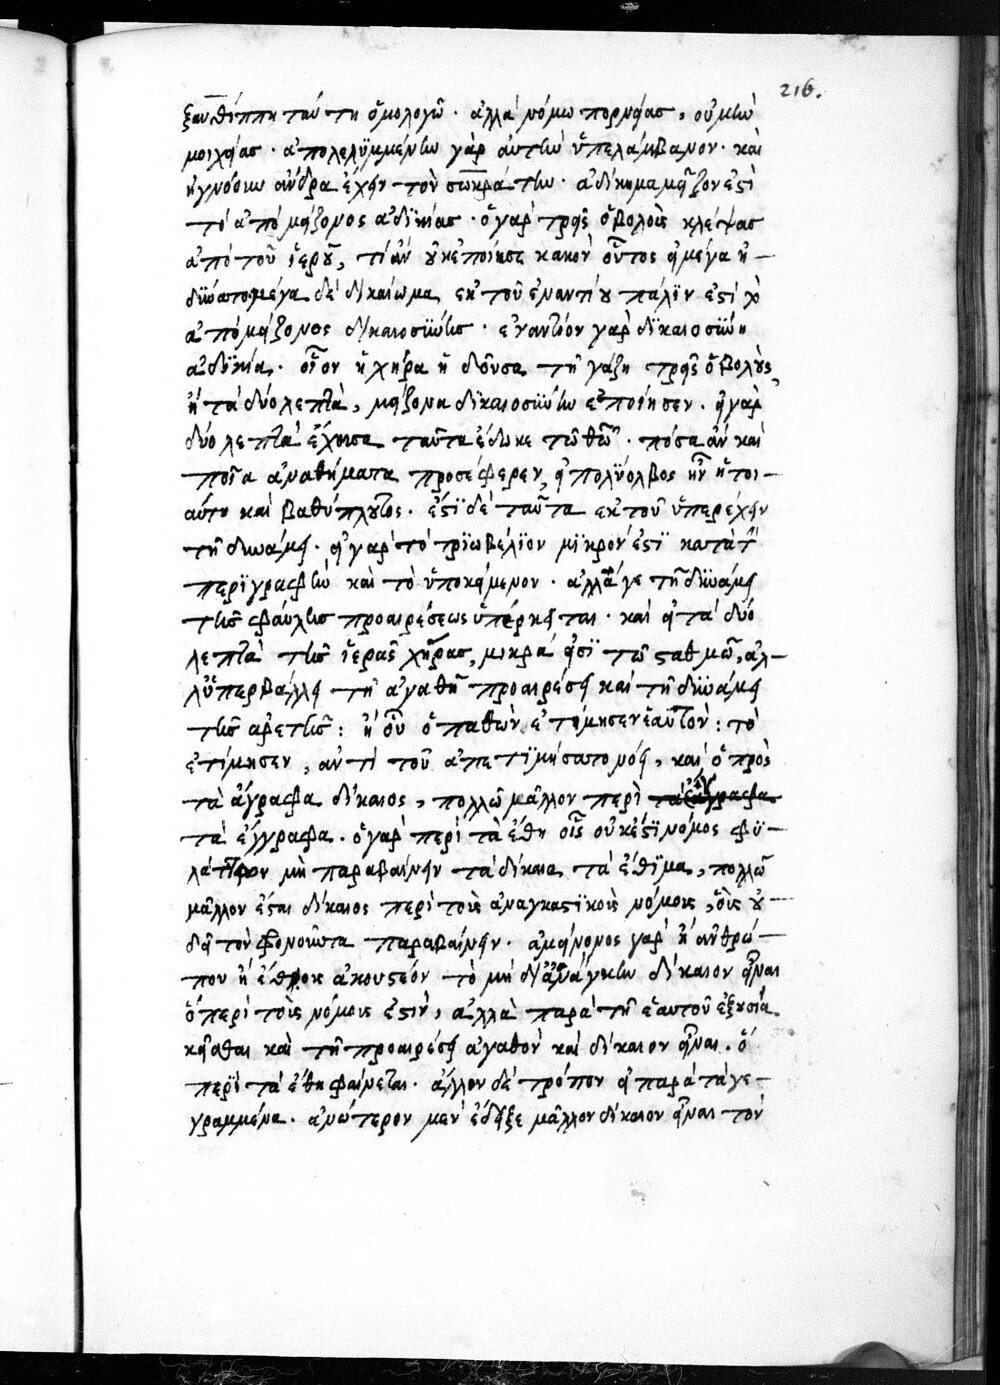 216.
ξανθίππη ταύτη ὁμολογῶ. ἀλλὰ νόμω πορνείας, οὐ μὴν
μοιχείας. ἀπολελϋμμένην γὰρ αὐτὴν ὑπελάμβανον. καὶ
ἠγνόουν ἄνδρα ἔχειν τὸν σωκράτην. ἀδίκημα μεῖζον ἐστὶ
τὸ ἀπὸ μείζονος ἀδϊκίας. ὁ γὰρ τρεῖς ὀβολοὺς κλέψας
ἀπὸ τοῦ ἱεροῦ, τί ἂν οὐκ ἐποίησε κακὸν οὗτος εἰ μέγα ἠ-
δύνατο μέγα δὲ δικαίωμα ἐκ τοῦ ἐναντίου πάλϊν ἐστὶ τὸ
ἀπὸ μείζονος δικαιοσύνης. ἐναντίον γὰρ δϊκαιοσύνη
ἀδϊκία. οἷον ἡ χήρα ἡ δοῦσα τῇ γάζη τρεῖς ὀβολοὺς,
ἢ τὰ δύο λεπτὰ, μείζονα δϊκαιοσύνην ἐποίησεν. εἰ γὰρ
δύο λεπτὰ ἔχουσα ταῦτα ἔδωκε τῶ θεῶ. πόσα ἂν καὶ
ποῖα ἀναθήματα προσέφερεν, εἰ πολϋόλβος ἦν ἡ τοι-
αύτη καὶ βαθύπλουτος. ἐστὶ δὲ ταῦτα ἐκ τοῦ ὑπερέχειν
τῇ δυνάμει. εἰ γὰρ τὸ τρϊωβέλϊον μϊκρόν ἐστϊ κατὰ τὴν
περϊγραφὴν καὶ τὸ ὑποκείμενον. ἀλλάγε τῇ δυνάμει
τῆς φαύλης προαιρέσεως ὑπέρκειται. καὶ εἰ τὰ δύο
λεπτὰ τῆς ἱερᾶς χήρας, μικρά εἰσϊ τῶ σταθμῶ, ἀλ-
λ' ὑπερβάλλει τῇ ἀγαθῇ προαιρέσει καὶ τῇ δυνάμει
τῆς ἀρετῆς: ἢ οὗ ὁ παθὼν ἐτίμησεν ἑαυτὸν: τὸ
ἐτίμησεν, ἀντὶ τοῦ ἀπετϊμήσατο νόει, καὶ ὁ πρὸς
τὰ ἄγραφα δίκαιος, πολλῶ μᾶλλον περὶ
τὰ ἔγγραφα. ὁ γὰρ περὶ τὰ ἔθη οἷς οὐκ ἐστϊ νόμος φϋ-
λάττων μὴ παραβαίνειν τὰ δίκαια τὰ ἔθϊμα, πολλῶ
μᾶλλον ἔσται δίκαιος περὶ τοὺς ἀναγκαστϊκοὺς νόμους, οὓς οὐ
δεῖ τὸν φρονοῦντα παραβαίνειν. ἀμείνονος γὰρ ἢ ἀνθρώ-
που ἢ ἔθνους ἀκουστέον τὸ μὴ δι' ἀνάγκην δίκαιον εἶναι
ὃ περὶ τοὺς νόμους ἐστὶν, ἀλλὰ παρὰ τῇ ἑαυτοῦ ἐξουσία
κεῖσθαι καὶ τῇ προαιρέσει ἀγαθὸν καὶ δίκαιον εἶναι. ὃ
περὶ τὰ ἔθη φαίνεται. ἄλλον δὲ τρόπον εἰ παρὰ τὰ γε-
γραμμένα. ἀνώτερον μὲν ἔδειξε μᾶλλον δίκαιον εἶναι τὸν